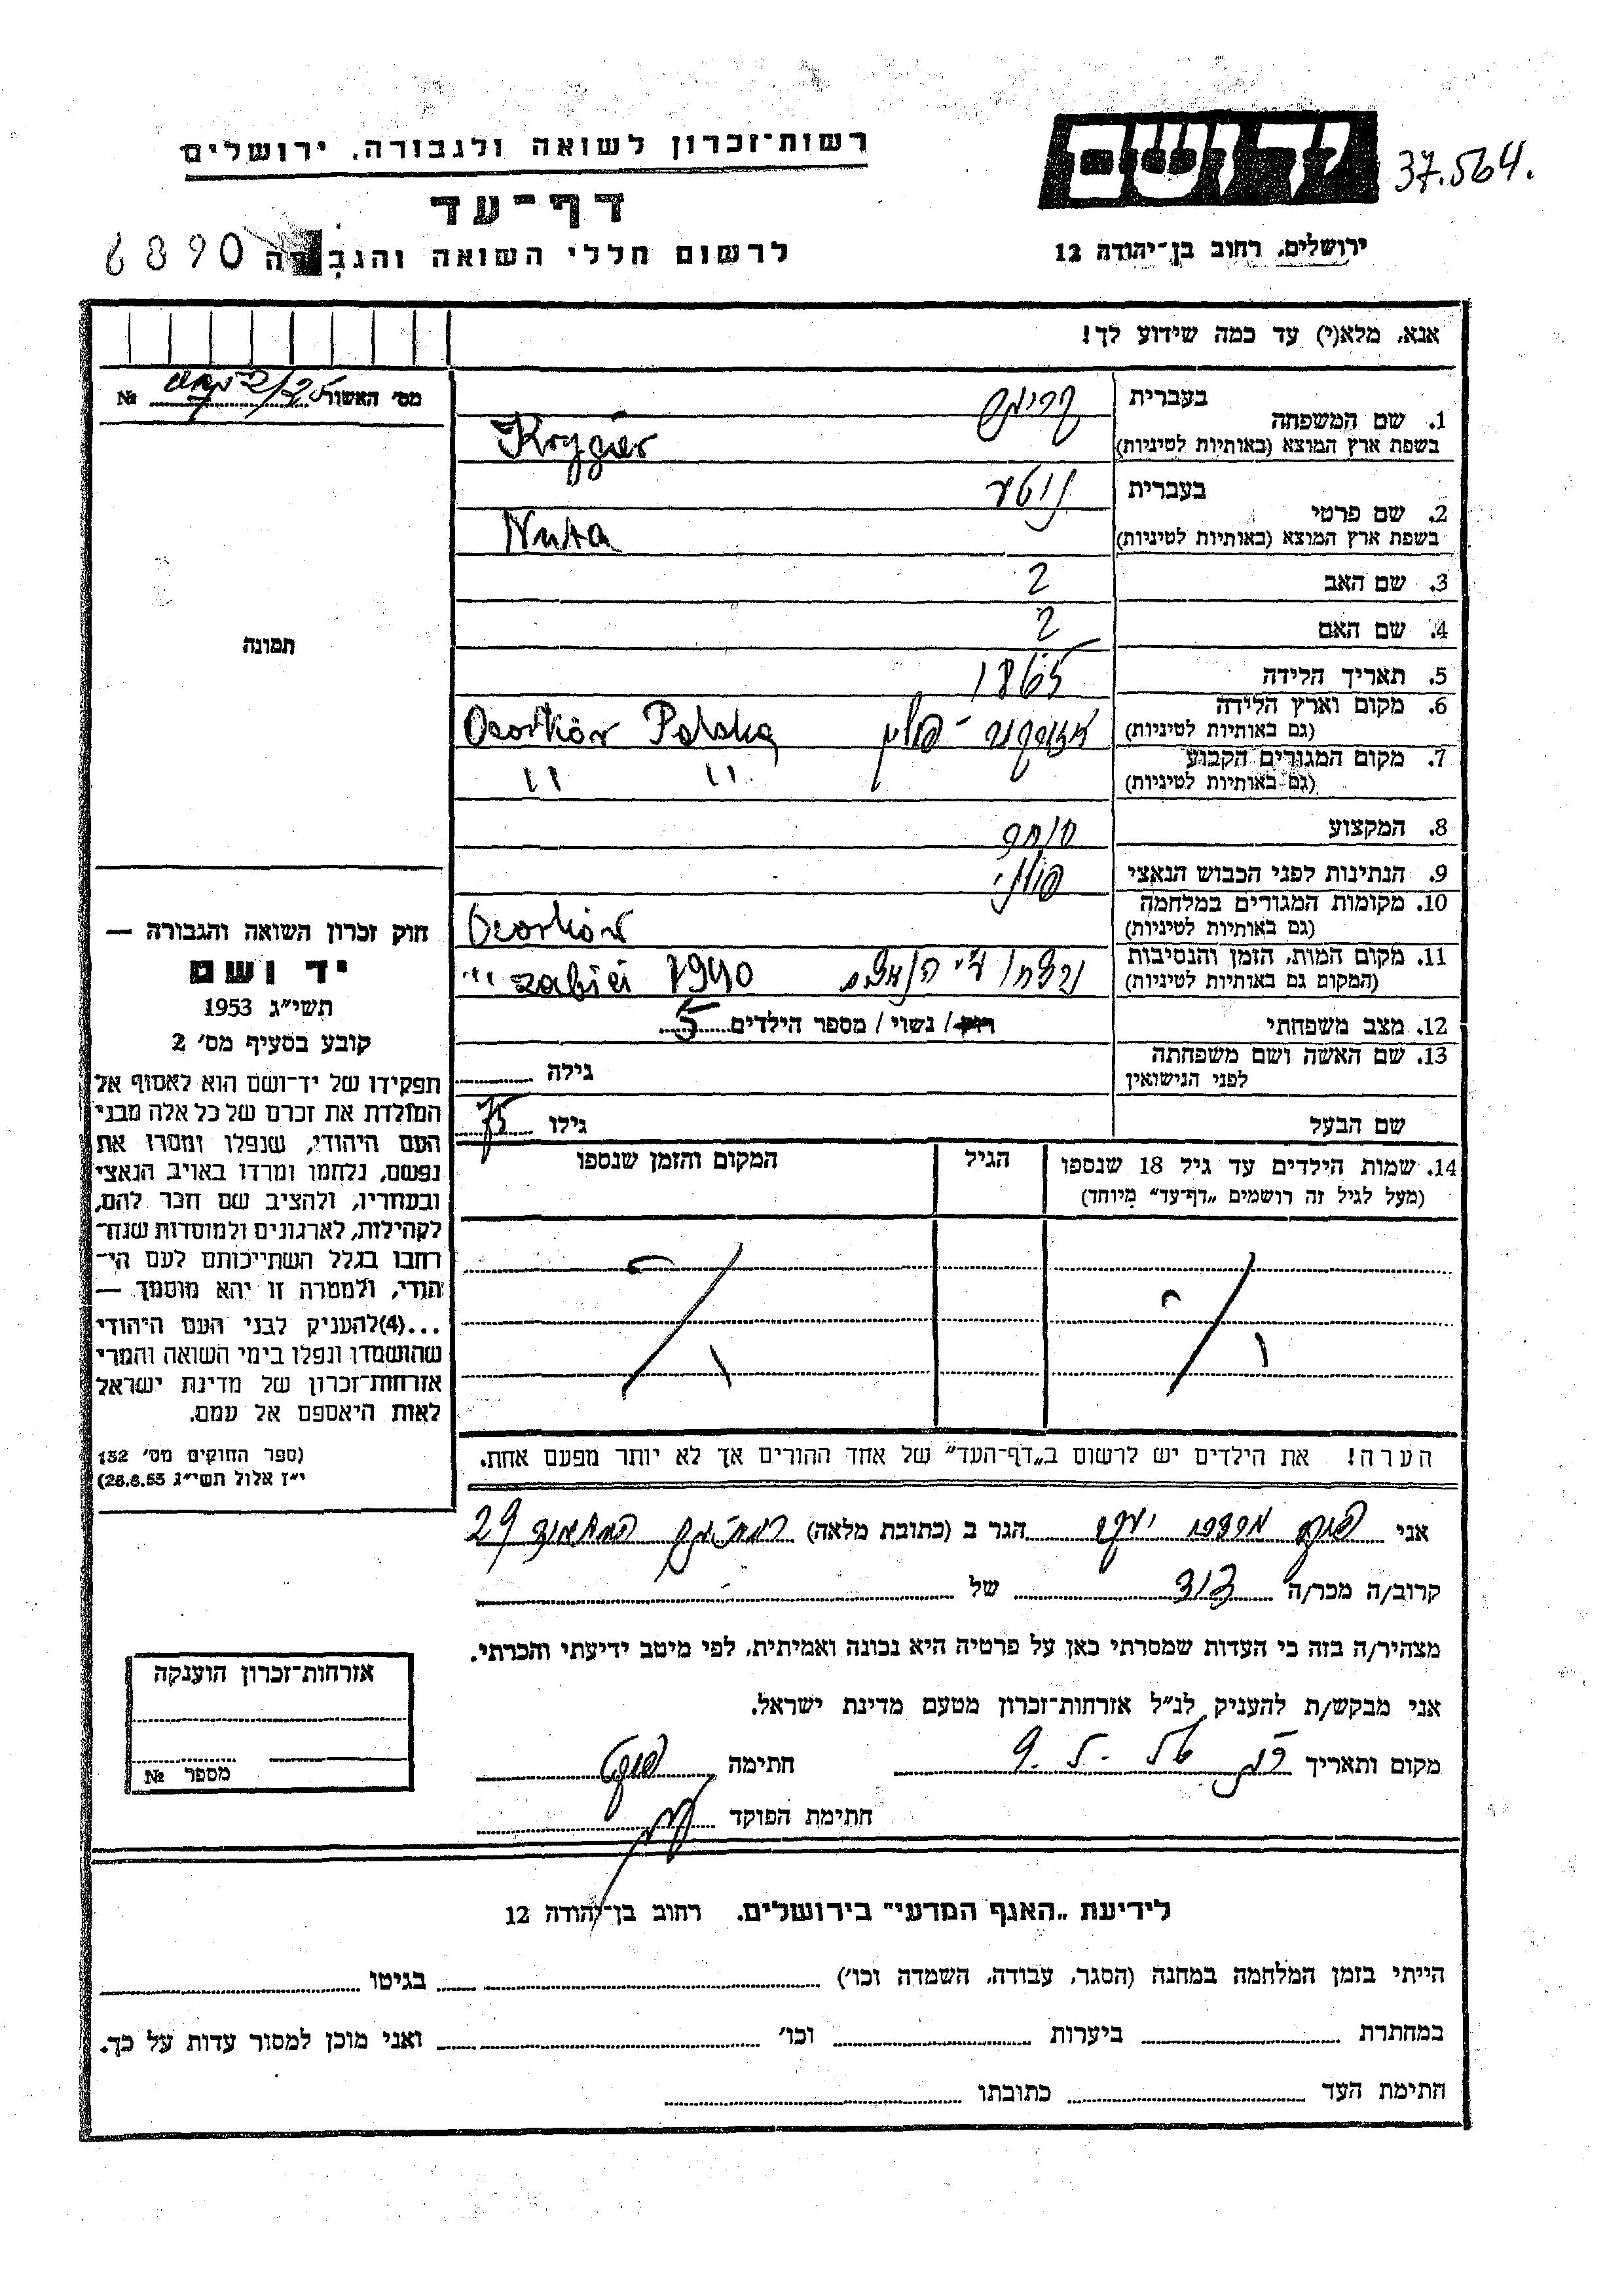 רשות־זכרון לשואה ולגבורה, ירושלים
יד ושם
37.564.
דף־עד
לרשום חללי השואה והגבורה
6890
ירושלים, רחוב בן־יהודה 12
אנא, מלא(י) עד כמה שידוע לך!
מס׳ האשור №
תמונה
חוק זכרון השואה והגבורה —
יד ושם
תשי״ג 1953
קובע בסעיף מס׳ 2
תפקידו של יד־ושם הוא לאסוף אל
המולדת את זכרם של כל אלה מבני
העם היהודי, שנפלו ומסרו את
נפשם, נלחמו ומרדו באויב הנאצי
ובעוזריו, ולהציב שם וזכר להם,
לקהילות, לארגונים ולמוסדות שנח־
רחבו בגלל השתייכותם לעם הי־
הודי, ולמטרה זו יהא מוסמך —
...(4)להעניק לבני העם היהודי
שהושמדו ונפלו בימי השואה והמרי
אזרחות־זכרון של מדינת ישראל
לאות היאספם אל עמם.
(ספר החוקים מס׳ 132
י״ז אלול תשי״ג 28.8.53)
בעברית
1. שם המשפחה
בשפת ארץ המוצא (באותיות לטיניות) Krygier
בעברית נוטע
2. שם פרטי
בשפת ארץ המוצא (באותיות לטיניות) Nuta
3. שם האב ?
4. שם האם ?
5. תאריך הלידה 1865
6. מקום וארץ הלידה פולין Ozorków Polska
(גם באותיות לטיניות)
7. מקום המגורים הקבוע " "
(גם באותיות לטיניות)
8. המקצוע סוחר
9. הנתינות לפני הכבוש הנאצי פולני
10. מקומות המגורים במלחמה Ozorków
(גם באותיות לטיניות)
11. מקום המות, הזמן והנסיבות נרצח ע״י הנאצים 1940 zabici "
(המקום גם באותיות לטיניות)
12. מצב משפחתי רווק / נשוי / מספר הילדים 5
13. שם האשה ושם משפחתה גילה
לפני הנישואין
שם הבעל גילו 75
14. שמות הילדים עד גיל 18 שנספו הגיל המקום והזמן שנספו
(מעל לגיל זה רושמים „דף־עד״ מיוחד)
הערה! את הילדים יש לרשום ב„דף־העד״ של אחד ההורים אך לא יותר מפעם אחת.
אני יעקב הגר ב (כתובת מלאה) 29
קרוב/ה מכר/ה נכד של
מצהיר/ה בזה כי העדות שמסרתי כאן על פרטיה היא נכונה ואמיתית, לפי מיטב ידיעתי והכרתי.
אני מבקש/ת להעניק לנ״ל אזרחות־זכרון מטעם מדינת ישראל.
מקום ותאריך חתימה
חתימת הפוקד
אזרחות־זכרון הוענקה
מספר №
לידיעת „האגף המדעי״ בירושלים, רחוב בן־יהודה 12
הייתי בזמן המלחמה במחנה (הסגר, עבודה, השמדה וכו׳) בגיטו
במחתרת ביערות וכו׳ ואני מוכן למסור עדות על כך.
חתימת העד כתובתו